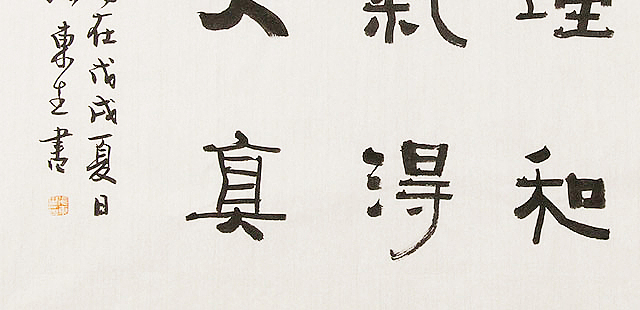 理和
氣得
真
在戊戌夏日
東 書